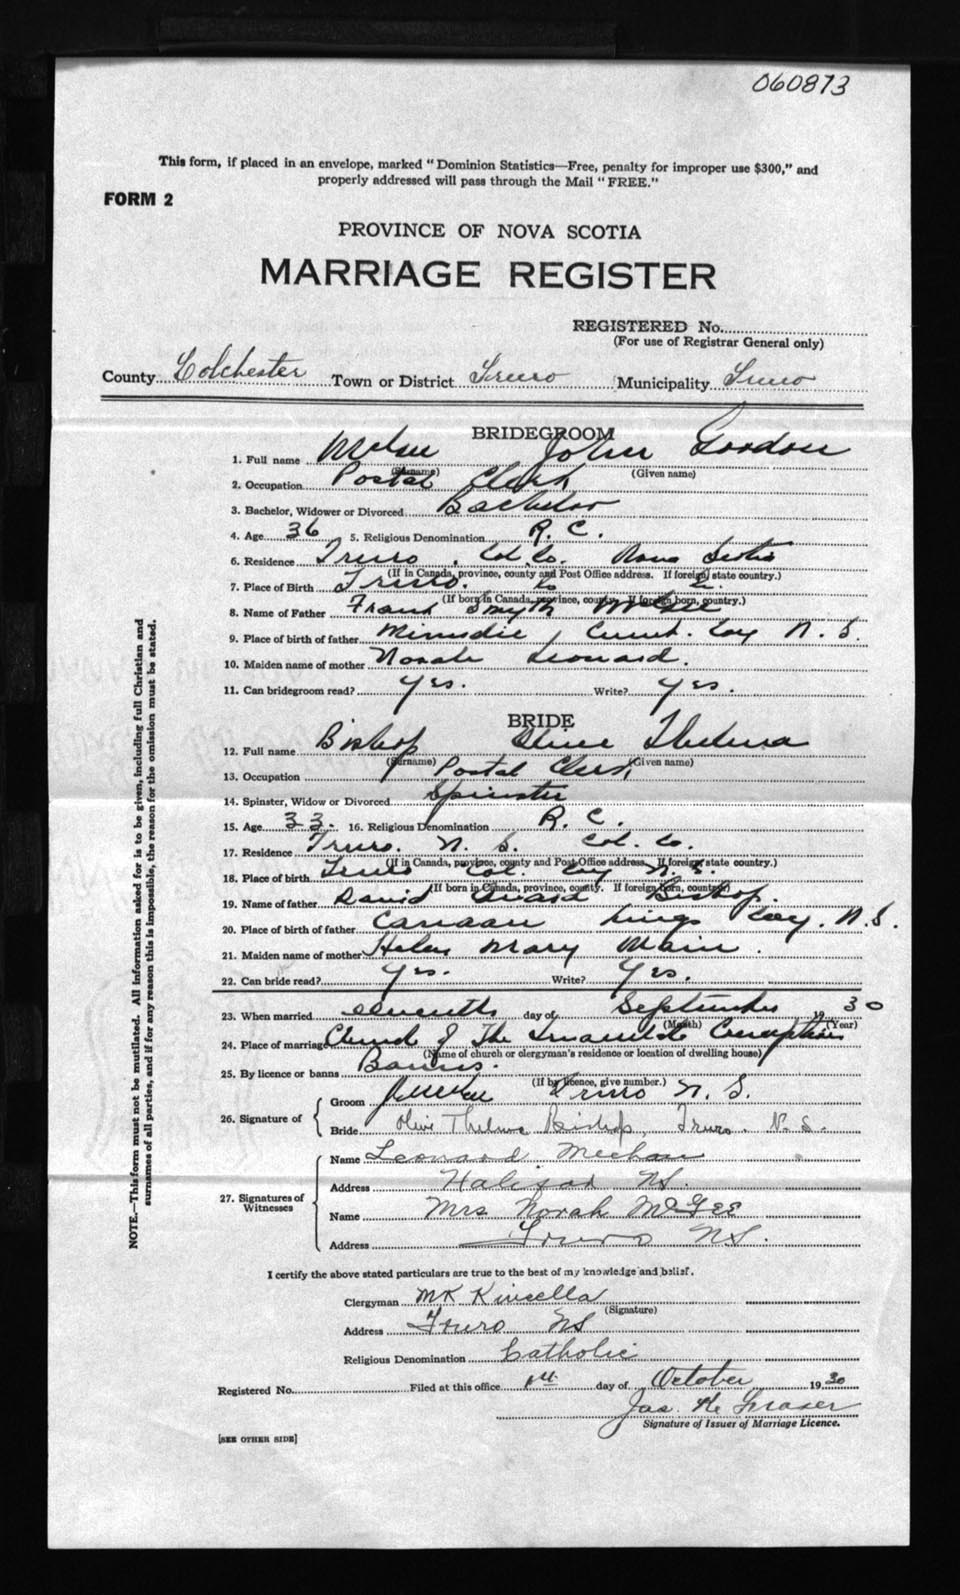 060873
This form, if placed in an envelope, marked "Dominion Statistics—Free, penalty for improper use $300," and
properly addressed will pass through the Mail "FREE."
FORM 2
PROVINCE OF NOVA SCOTIA
MARRIAGE REGISTER
REGISTERED No.
(For use of Registrar General only)
County Colchester Town or District Truro Municipality Truro
BRIDEGROOM
1. Full name John Gordon
(Surname) (Given name)
2. Occupation Postal Clerk
3. Bachelor, Widower or Divorced Bachelor
4. Age 36 5. Religious Denomination R. C.
6. Residence Truro, Col. Co. Nova Scotia
(If in Canada, province, county and Post Office address. If foreign, state country.)
7. Place of Birth Truro.
(If born in Canada, province, county. If foreign born, country.)
8. Name of Father Frank Smyth
9. Place of birth of father Minudie, Cumb. Coy N. S.
10. Maiden name of mother Norah Leonard.
11. Can bridegroom read? Yes. Write? Yes.
BRIDE
12. Full name Bishop Olive Thelma
(Surname) (Given name)
13. Occupation Postal Clerk
14. Spinster, Widow or Divorced Spinster
15. Age 33. 16. Religious Denomination R. C.
17. Residence Truro. N. S. Col. Co.
(If in Canada, province, county and Post Office address. If foreign state country.)
18. Place of birth Truro Col. Coy N. S.
(If born in Canada, province, county. If foreign born, country)
19. Name of father David Bishop.
20. Place of birth of father Canaan Kings Coy. N. S.
21. Maiden name of mother Helen Mary Main.
22. Can bride read? Yes. Write? Yes.
23. When married eleventh day of September 1930
(Month) (Year)
24. Place of marriage Church of The Immaculate Conception
(Name of church or clergyman's residence or location of dwelling house)
25. By licence or banns Banns.
(If by licence, give number.)
26. Signature of
Groom Truro N. S.
Bride Olive Thelma Bishop, Truro. N. S.
27. Signatures of Witnesses
Name Leonard Meehan
Address Halifax NS.
Name Mrs Norah McGEE
Address Truro NS.
I certify the above stated particulars are true to the best of my knowledge and belief.
Clergyman MK Kinsella
(Signature)
Address Truro NS
Religious Denomination Catholic
Registered No. Filed at this office day of October 1930
Jas. K. Fraser
Signature of Issuer of Marriage Licence.
[SEE OTHER SIDE]
NOTE.—This form must not be mutilated. All information asked for is to be given, including full Christian and
surnames of all parties, and if for any reason this is impossible, the reason for the omission must be stated.